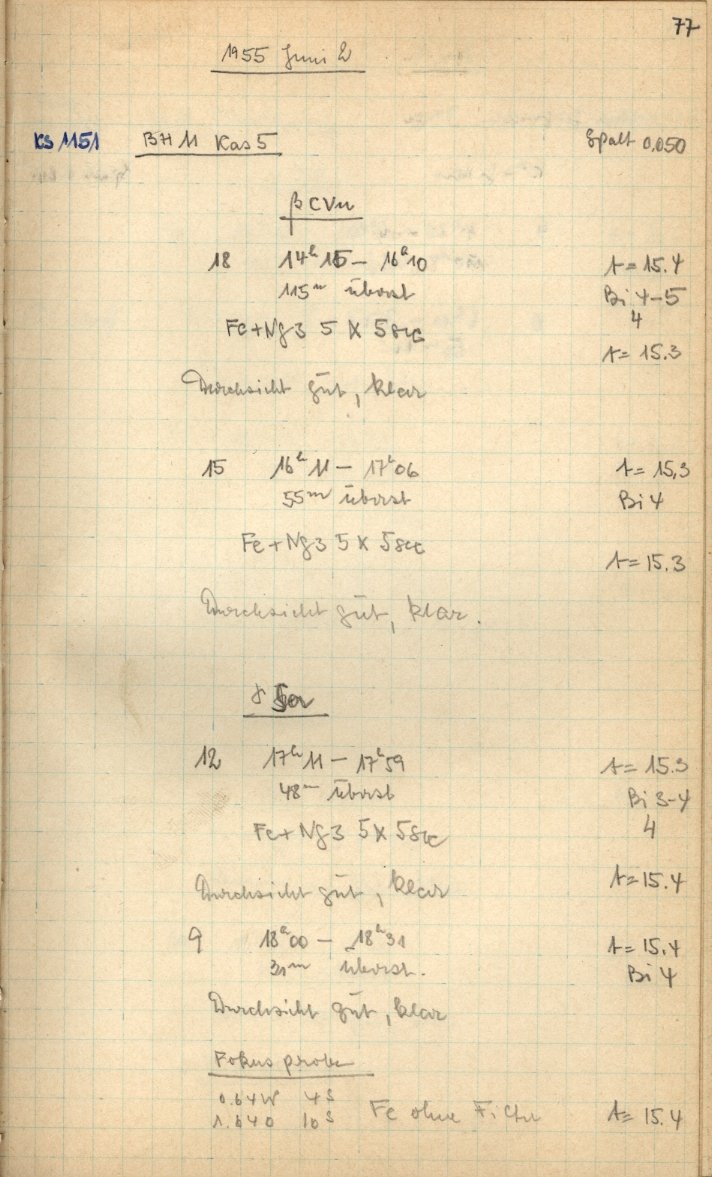 77
1955 Juni 2
KS 1151 BH 11 Kas 5 Spalt 0.050
β CVn
18 14h 15 – 16h 10 t = 15.4
115m überst Bi 4–5
4
Fe+Ng3 5 x 5 sec
t = 15.3
Durchsicht gut, klar
15 16h 11 – 17h 06 t = 15,3
55m überst Bi 4
Fe+Ng3 5 x 5 sec
t = 15.3
Durchsicht gut, klar.
12 17h 11 – 17h 59 t = 15.3
48m überst Bi 3–4
Fe+Ng3 5 x 5 sec 4
t = 15.4
Durchsicht gut, klar
9 18h 00 – 18h 31 t = 15.4
31m überst. Bi 4
Durchsicht gut, klar
Fokusprobe
4s
10s Fe ohne Filter t = 15.4